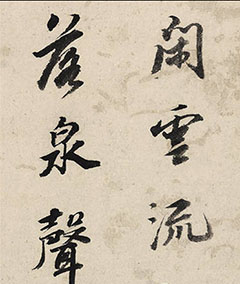 閑雲流
落泉聲